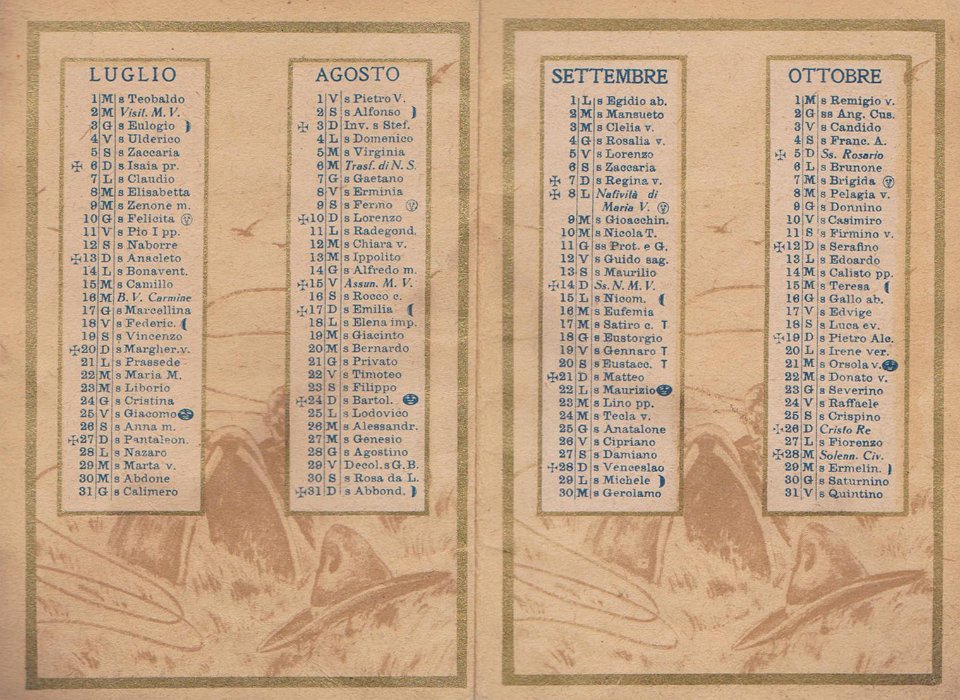 LUGLIO
1 M s Teobaldo
2 M Visit. M. V.
3 G s Eulogio
4 V s Ulderico
5 S s Zaccaria
✠ 6 D s Isaia pr.
7 L s Claudio
8 M s Elisabetta
9 M s Zenone m.
10 G s Felicita
11 V s Pio I pp.
12 S s Naborre
✠ 13 D s Anacleto
14 L s Bonavent.
15 M s Camillo
16 M B. V. Carmine
17 G s Marcellina
18 V s Federic.
19 S s Vincenzo
✠ 20 D s Margher.v.
21 L s Prassede
22 M s Maria M.
23 M s Liborio
24 G s Cristina
25 V s Giacomo
26 S s Anna m.
✠ 27 D s Pantaleon.
28 L s Nazaro
29 M s Marta v.
30 M s Abdone
31 G s Calimero
AGOSTO
1 V s Pietro V.
2 S s Alfonso
✠ 3 D Inv. s Stef.
4 L s Domenico
5 M s Virginia
6 M Trasf. di N. S.
7 G s Gaetano
8 V s Erminia
9 S s Fermo
✠ 10 D s Lorenzo
11 L s Radegond.
12 M s Chiara v.
13 M s Ippolito
14 G s Alfredo m.
✠ 15 V Assun. M. V.
16 S s Rocco c.
✠ 17 D s Emilia
18 L s Elena imp.
19 M s Giacinto
20 M s Bernardo
21 G s Privato
22 V s Timoteo
23 S s Filippo
✠ 24 D s Bartol.
25 L s Lodovico
26 M s Alessandr.
27 M s Genesio
28 G s Agostino
29 V Decol. s G. B.
30 S s Rosa da L.
✠ 31 D s Abbond.
SETTEMBRE
1 L s Egidio ab.
2 M s Mansueto
3 M s Clelia v.
4 G s Rosalia v.
5 V s Lorenzo
6 S s Zaccaria
✠ 7 D s Regina v.
✠ 8 L Natività di
Maria V.
9 M s Gioacchin.
10 M s Nicola T.
11 G ss Prot. e G.
12 V s Guido sag.
13 S s Maurilio
✠ 14 D Ss. N. M. V.
15 L s Nicom.
16 M s Eufemia
17 M s Satiro c. T
18 G s Eustorgio
19 V s Gennaro T
20 S s Eustacc. T
✠ 21 D s Matteo
22 L s Maurizio
23 M s Lino pp.
24 M s Tecla v.
25 G s Anatalone
26 V s Cipriano
27 S s Damiano
✠ 28 D s Venceslao
29 L s Michele
30 M s Gerolamo
OTTOBRE
1 M s Remigio v.
2 G ss Ang. Cus.
3 V s Candido
4 S s Franc. A.
✠ 5 D Ss. Rosario
6 L s Brunone
7 M s Brigida
8 M s Pelagia v.
9 G s Donnino
10 V s Casimiro
11 S s Firmino v.
✠ 12 D s Serafino
13 L s Edoardo
14 M s Calisto pp.
15 M s Teresa
16 G s Gallo ab.
17 V s Edvige
18 S s Luca ev.
✠ 19 D s Pietro Alc.
20 L s Irene ver.
21 M s Orsola v.
22 M s Donato v.
23 G s Severino
24 V s Raffaele
25 S s Crispino
✠ 26 D Cristo Re
27 L s Fiorenzo
✠ 28 M Solenn. Civ.
29 M s Ermelin.
30 G s Saturnino
31 V s Quintino